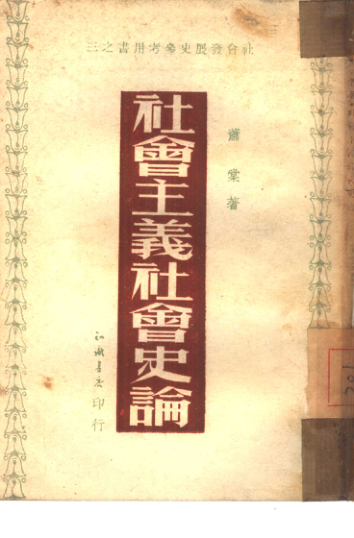 社會發展史參考用書之三
蕭棠著
社會主義社會史論
印行